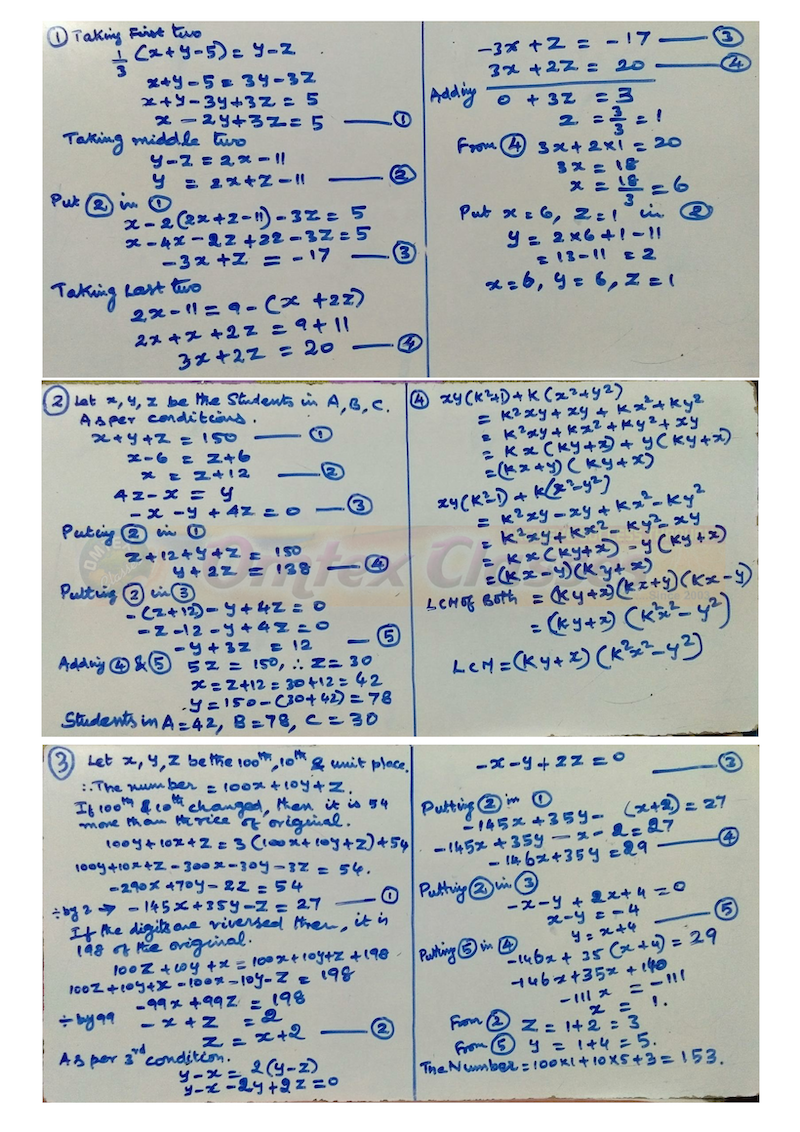 ① Taking First two
1/3 (x+y-5) = y-z
x+y-5 = 3y-3z
x+y-3y+3z = 5
x - 2y+3z = 5 —— ①
Taking middle two
y-z = 2x-11
y = 2x+z-11 —— ②
Put ② in ①
x-2(2x+z-11)-3z = 5
x-4x-2z+22-3z=5
-3x+z = -17 —— ③
Taking Last two
2x-11 = 9-(x+2z)
2x+x+2z = 9+11
3x+2z = 20 —— ④
-3x+z = -17 —— ③
3x+2z = 20 —— ④
Adding 0 + 3z = 3
z = 3/3 = 1
From ④ 3x+2x1 = 20
3x = 18
x = 18/3 = 6
Put x=6, z=1 in ②
y = 2x6+1-11
= 13-11 = 2
x=6, y=6, z=1
② Let x, y, z be the Students in A, B, C.
As per conditions.
x+y+z = 150 —— ①
x-6 = z+6
x = z+12 —— ②
4z-x = y
-x-y+4z = 0 —— ③
Puting ② in ①
z+12+y+z = 150
y+2z = 138 —— ④
Putting ② in ③
-(z+12)-y+4z=0
-z-12-y+4z=0
-y+3z = 12 —— ⑤
Adding ④ & ⑤ 5z = 150, ∴z=30
x=z+12=30+12=42
y=150-(30+42)=78
Students in A=42, B=78, C=30
④ xy(k²+1)+k(x²+y²)
= k²xy+xy+kx²+ky²
= k²xy+kx²+ky²+xy
= kx(ky+x)+y(ky+x)
= (kx+y)(ky+x)
xy(k²-1)+k(x²-y²)
= k²xy-xy+kx²-ky²
= k²xy+kx²-ky²-xy
= kx(ky+x)-y(ky+x)
= (kx-y)(ky+x)
LCM of Both = (ky+x)(kx+y)(kx-y)
= (ky+x)(k²x²-y²)
LCM = (ky+x)(k²x²-y²)
Omtex Classes
Since 2003
③ Let x, y, z be the 100th, 10th & unit place.
∴ The number = 100x+10y+z.
If 100th & 10th changed, then it is 54
more than thrice of original.
100y+10x+z = 3(100x+10y+z)+54
100y+10x+z-300x-30y-3z = 54.
-290x+70y-2z = 54
÷by 2 → -145x+35y-z = 27 —— ①
If the digits are riversed then, it is
198 of the original.
100z+10y+x = 100x+10y+z+198
100z+10y+x-100x-10y-z = 198
-99x+99z = 198
÷by 99 -x+z = 2
z = x+2 —— ②
As per 3rd condition.
y-x = 2(y-z)
y-x-2y+2z=0
-x-y+2z=0 —— ③
Putting ② in ①
-145x+35y-(x+2)=27
-145x+35y-x-2=27
-146x+35y=29 —— ④
Putting ② in ③
-x-y+2x+4=0
x-y=-4
y=x+4 —— ⑤
Putting ⑤ in ④
-146x+35(x+4)=29
-146x+35x+140
-111x = -111
x = 1.
From ② z = 1+2 = 3
From ⑤ y = 1+4 = 5.
The Number = 100x1+10x5+3 = 153.